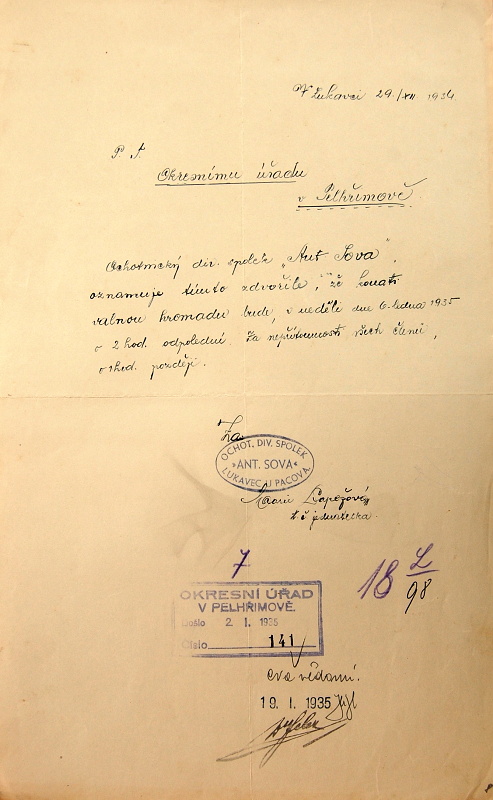 V Lukavci 29./XII. 1934.
P. T.
Okresnímu úřadu
v Pelhřimově
Ochotnický div. spolek „Ant Sova",
oznamuje tímto zdvořile, že konati
valnou hromadu bude, v neděli dne 6. ledna 1935
o 2 hod. odpolední. Za nepřítomnosti všech členů,
o 1 hod. později.
Za
OCHOT. DIV. SPOLEK
»ANT. SOVA«
LUKAVEC U PACOVA.
Marie
t. č. jednatelka.
7
18 L/98
OKRESNÍ ÚŘAD
V PELHŘIMOVĚ.
Došlo 2. I. 1935
Číslo 141
vědomí.
19. I. 1935